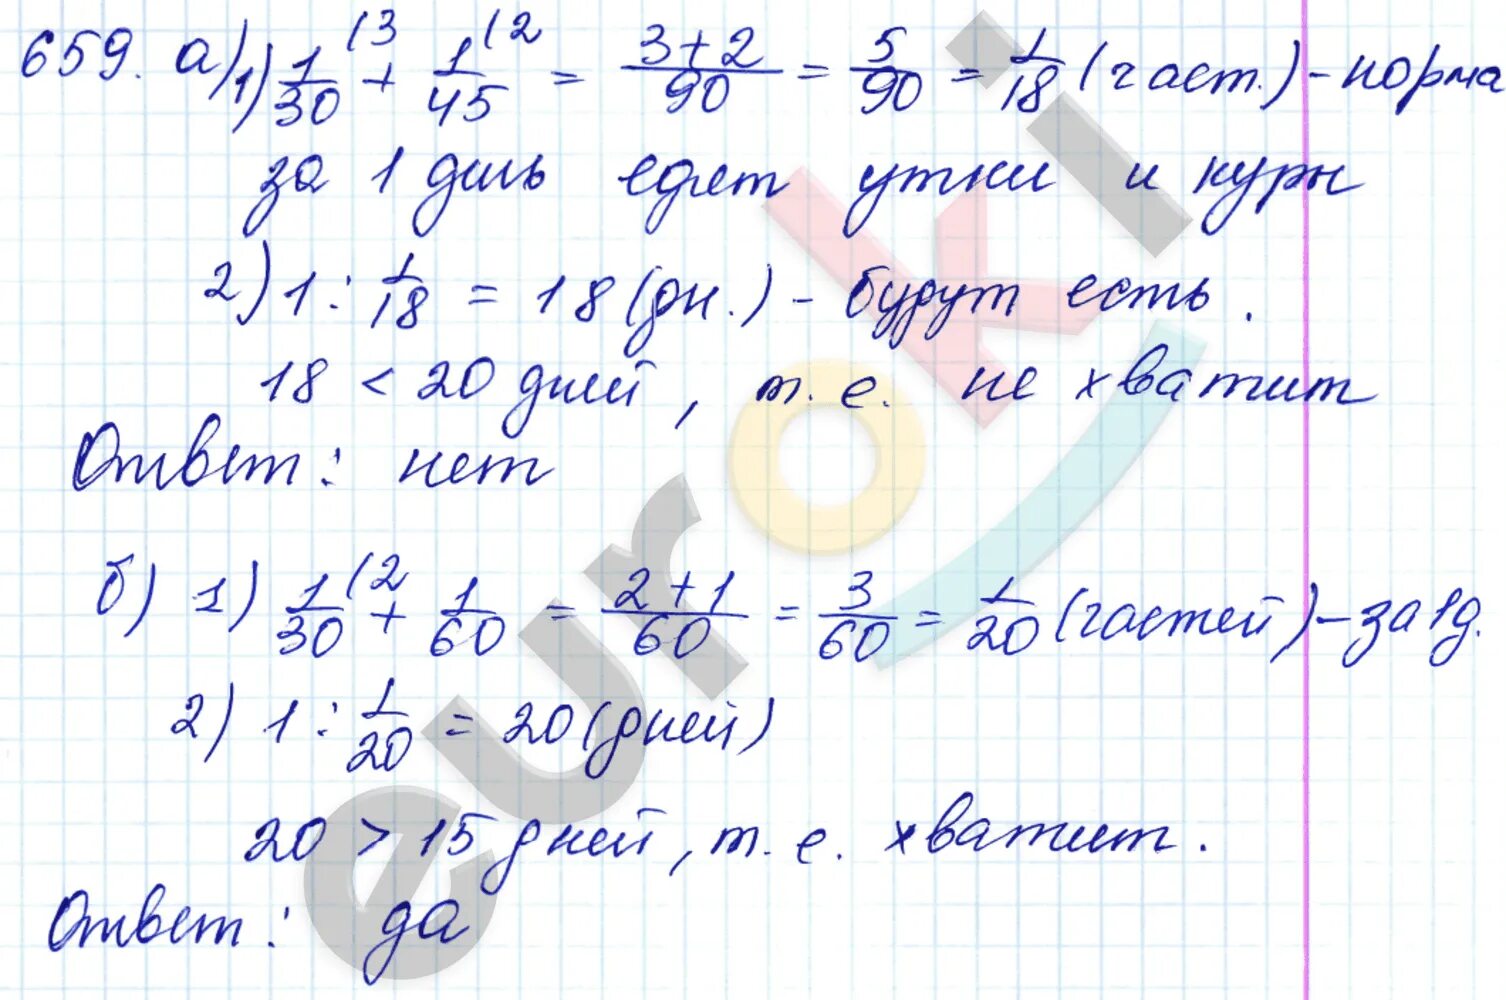 659. а) 1) 1/30 (3 + 1/45 (2 = 3+2/90 = 5/90 = 1/18 (част.) - норма
за 1 день едят утки и куры
2) 1 : 1/18 = 18 (дн.) - будут есть.
18 < 20 дней, т. е. не хватит
Ответ: нет
б) 1) 1/30 (2 + 1/60 = 2+1/60 = 3/60 = 1/20 (частей) - за 1д.
2) 1 : 1/20 = 20 (дней)
20 > 15 дней, т. е. хватит.
Ответ: да
euroki